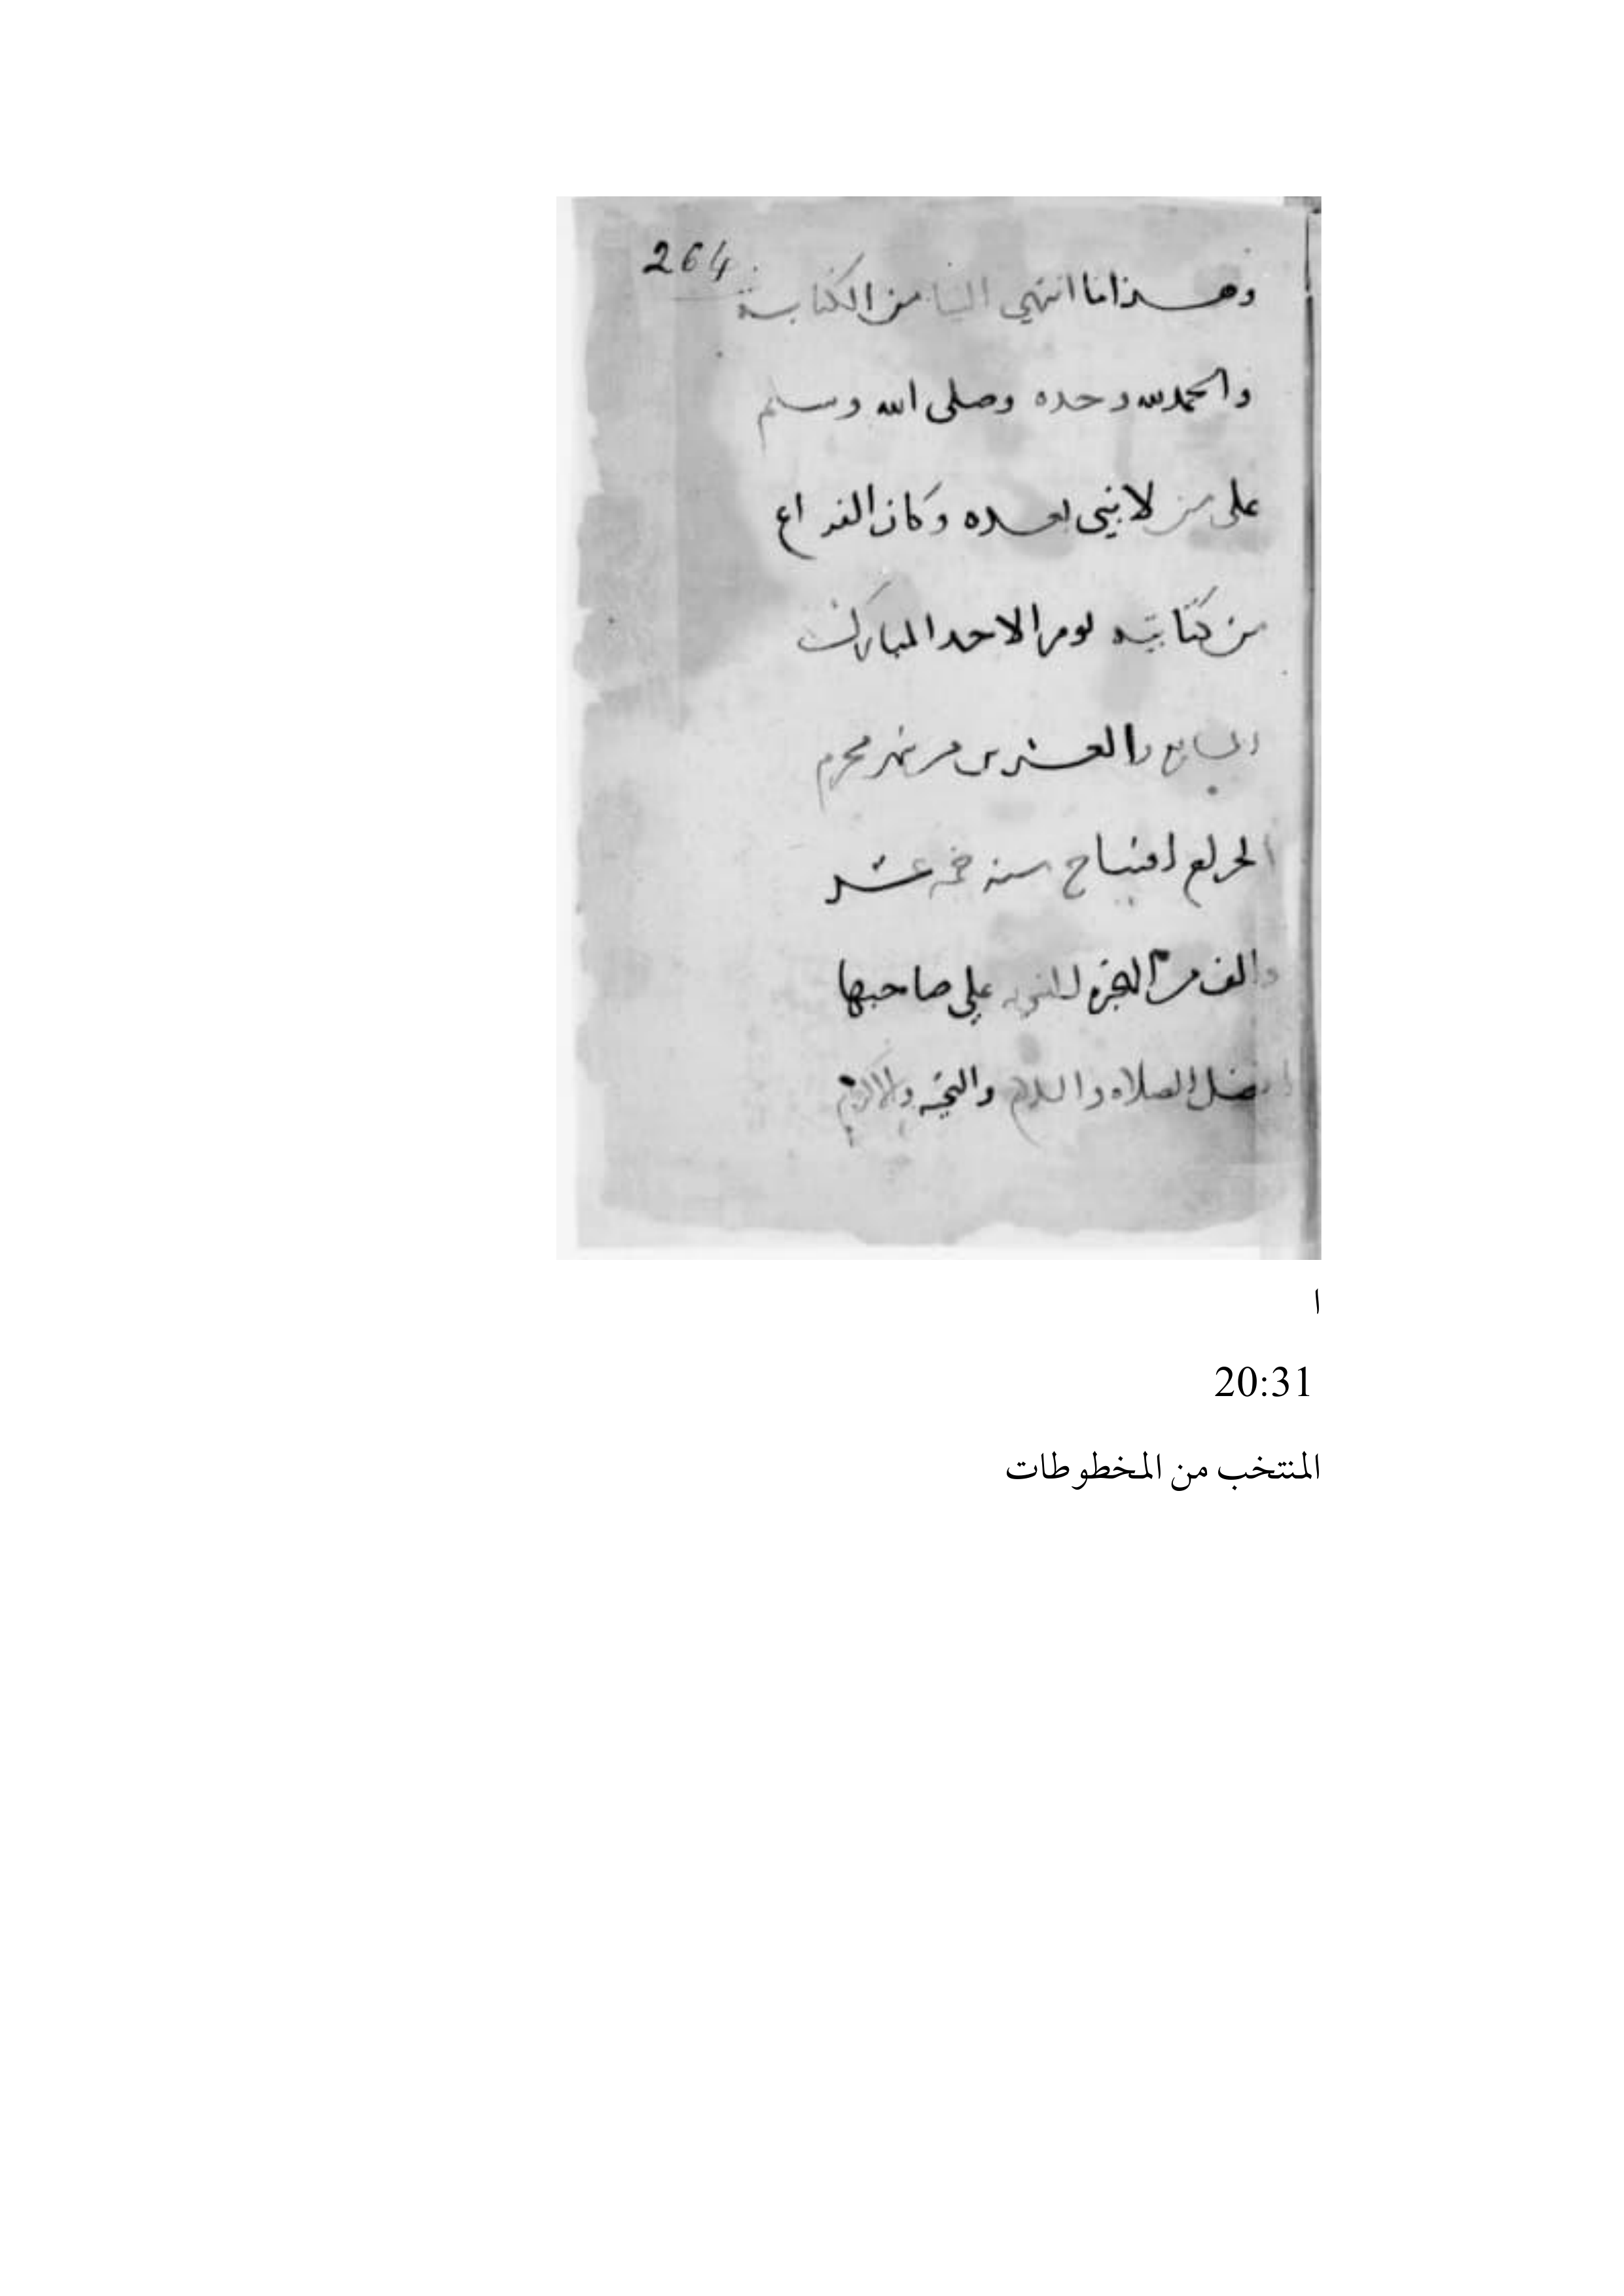 264
وهذا ما انتهي الينا من الكتابة
والحمد لله وحده وصلى الله وسلم
على من لا نبي بعده وكان الفراغ
من كتابته يوم الاحد المبارك
السابع والعشرين من شهر محرم
الحرام افتتاح سنة خمسة عشر
والف من الهجرة النبوية على صاحبها
افضل الصلاة والسلام والتحية والاكرام
ا
20:31
المنتخب من المخطوطات